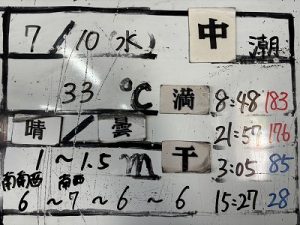 7/10 水 中 潮
33 ℃ 満 8:48 183
晴 / 曇 21:57 176
1～1.5m 干 3:05 85
南南西 南西
6～7～6～6 15:27 28